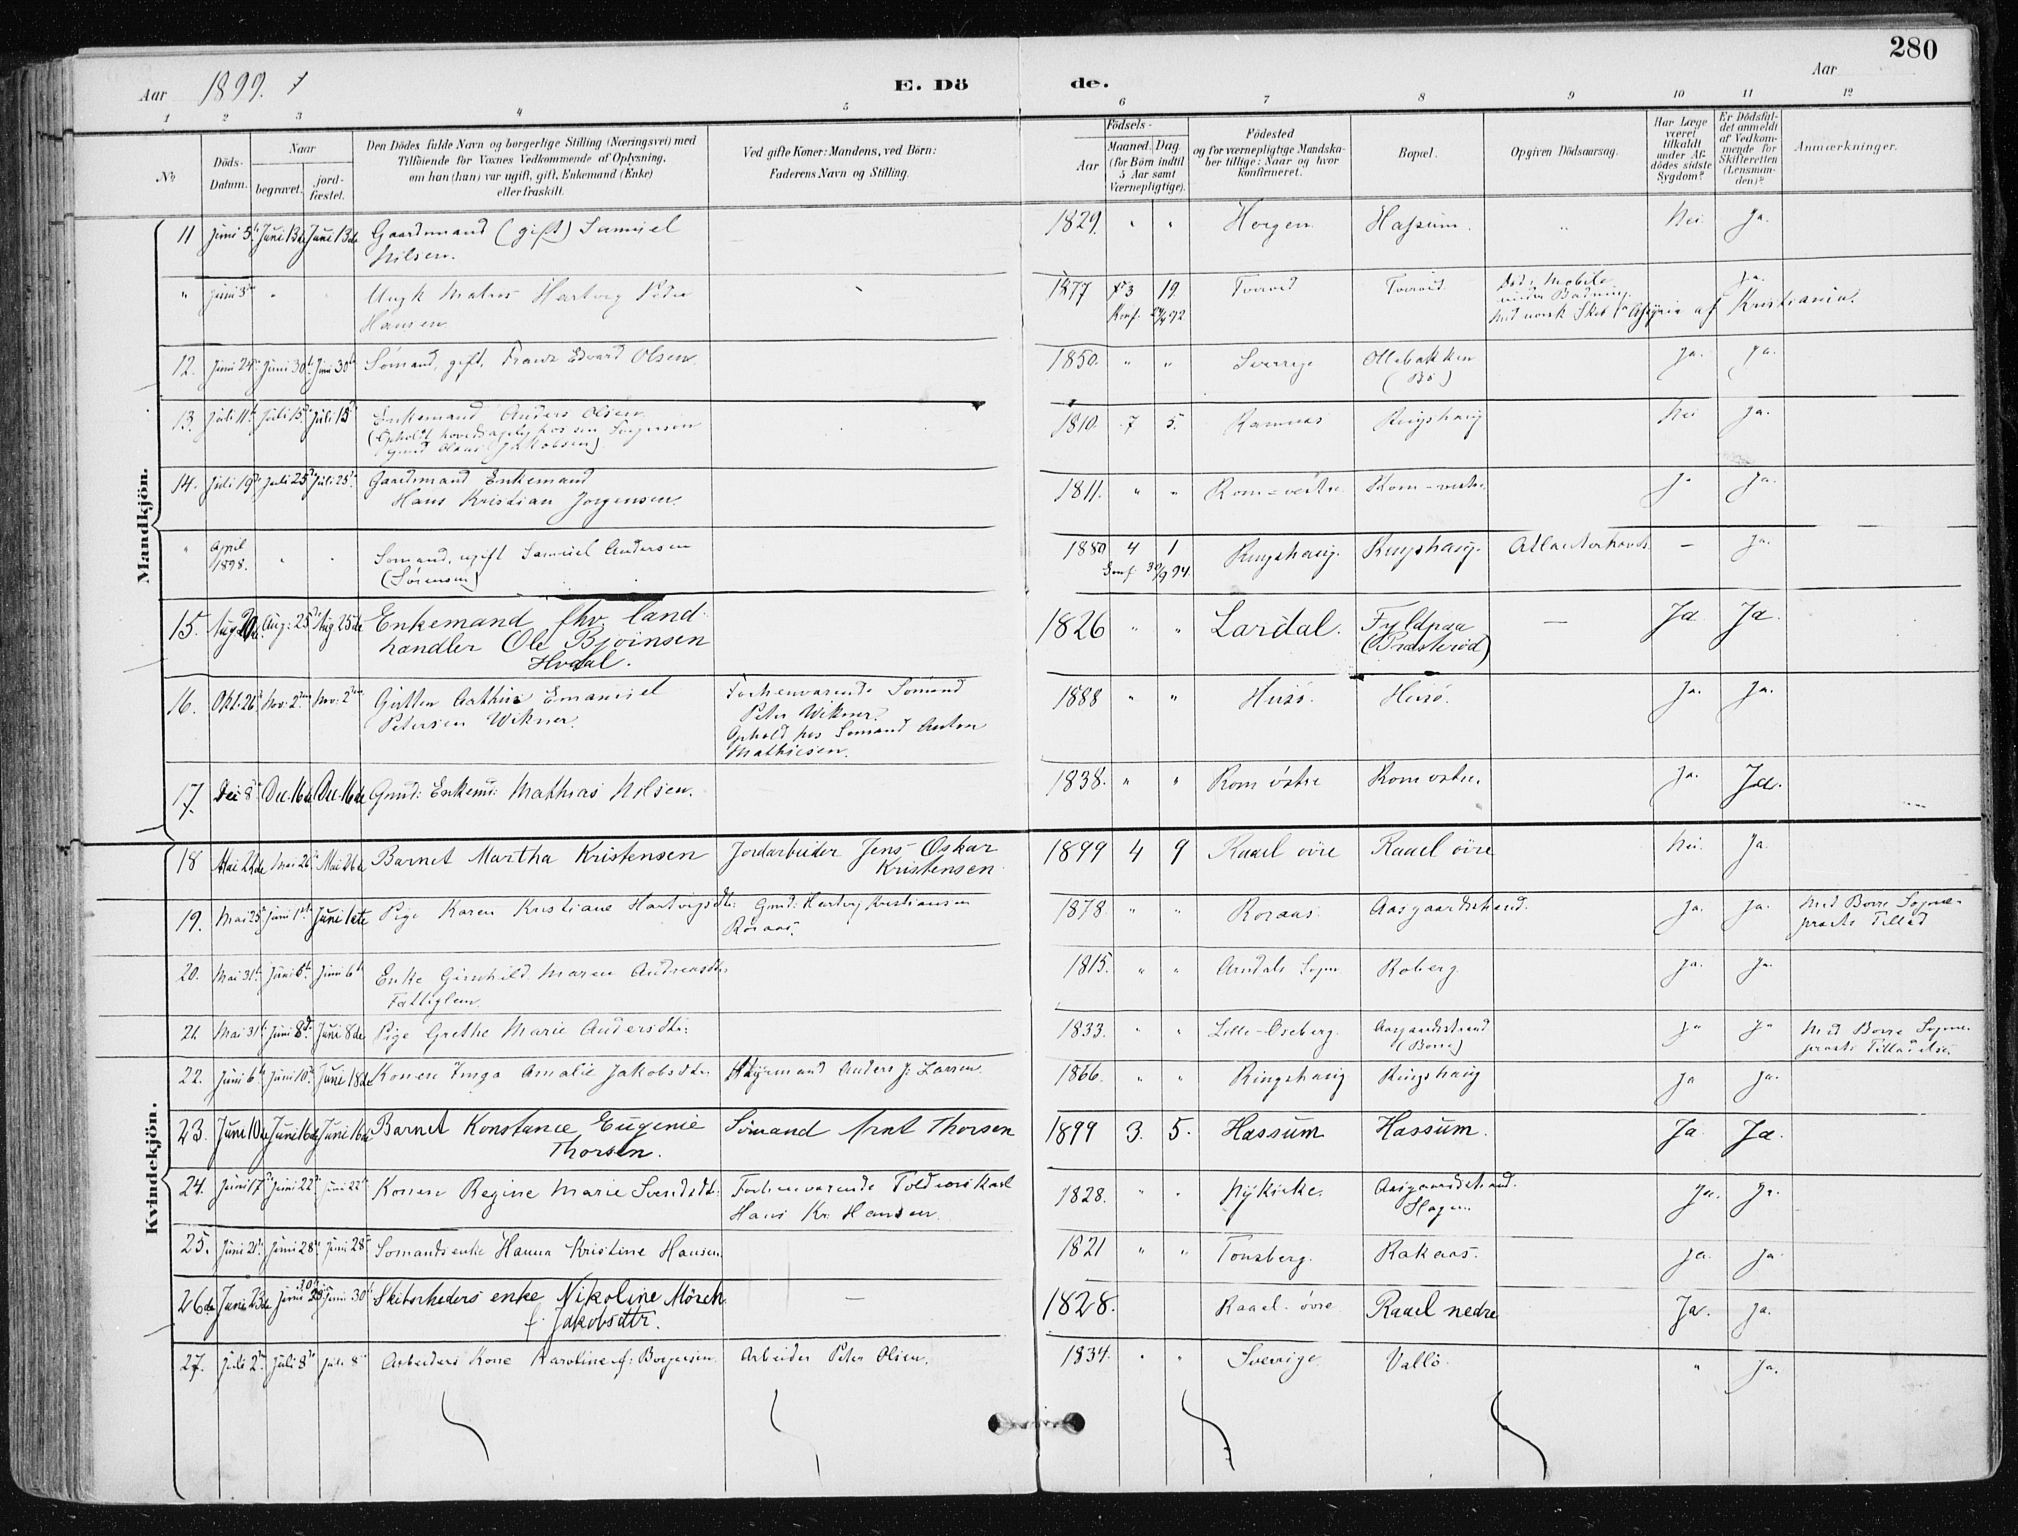 280
Aar 1899.
E. Dö de.
Aar
1 2 3 4 5 6 7 8 9 10 11 12
No
Döds-Datum.
Naar
begravet.
jord-fæstet.
Den Dödes fulde Navn og borgerlige Stilling (Næringsvei) med
Tilföiende for Voxnes Vedkommende af Oplysning,
om han (hun) var ugift, gift, Enkemand (Enke)
eller fraskilt.
Ved gifte Koner: Mandens, ved Börn:
Faderens Navn og Stilling.
Aar
Födsels-
Maaned. Dag
(for Börn indtil
5 Aar samt
Værnepligtige).
Födested
og for værnepligtige Mandska-
ber tillige: Naar og hvor
konfirmeret.
Bopæl.
Opgiven Dödsaarsag.
Har Læge
været
tilkaldt
under Af-
dödes sidste
Sygdom?
Er Dödsfal-
det anmeldt
af Vedkom-
mende for
Skifteretten
(Lensman-
den)?
Anmærkninger.
Mandkjön.
11 Juni 5te Juni 13de Juni 13de Gaardmand (gift) Samuel
Nilsen.
1829. " " Horgen. Hassum. " Nei. Ja.
" Juni 3de " " Ungk. Matros Hartvig Peder
Hansen
1877 3 19 Konf. Tverved Tverved. Död i Mobile
under Badning.
med norsk Skib af Kristiania. Ja.
12. Juni 24de Juni 30te Juni 30te Sömand, gift, Franz Edvard Olsen.
1850. " " Sverrige Ollebakken
(Bö) Ja. Ja.
13. Juli 11te Juli 15de Juli 15de Enkemand Anders Olsen
1810. 7 5. Ramnæs Ringshaug Nei Ja.
14. Juli 19de Juli 25de Juli 25de Gaardmand Enkemand
Hans Kristian Jorgensen.
1811. " " Rom-vestre Rom-vestre. Ja Ja.
" April
1898. " " Somand, ugift Samuel Andersen
(Sörensen)
1880 4 1 Ringshaug. Ringshaug. Atlanterhavet. — Ja.
15. Aug. 20de Aug: 25de Aug 25de Enkemand fhv. land-
handler Ole Bjoinsen
Hvdal.
1826 " " Lardal. Fyldpaa
(Præsteröd) — Ja Ja.
16. Okt. 26de Nov: 2den Nov: 2den Gutten Arthur Emanuel
Petersen Wikner.
Forhenværende Somand
Peter Wikner.
Ophold hos Somand Anton
Mathiesen.
1888 " " Husö. Husö. Ja. Ja.
17. Dec. 16de Dec. 16de Gmd: Enkemd: Mathias Nilsen.
1838. " " Rom östre Rom ostre. Ja. Ja.
Kvindekjön.
18 Mai 22de Mai 26de Mai 26de Barnet Martha Kristensen Jordarbeider Jens Oskar
Kristensen.
1899 4 9 Raael övre Raael övre Nei. Ja.
19. Mai 25de Juni 1ste Juni 1ste Pige Karen Kristiane Hartvigsdtr: Gmd: Hartvig Kristiansen
Röraas.
1878. " " Roraas. Aasgaardstrand. Ja. Ja. Med Borre Sogne-
præsts Tillad
20. Mai 31te Juni 6te Juni 6te Enke Gunhild Maren Andreasdtr.
Fattiglem.
1815. " " Arndals Sogn Roberg Ja. Ja.
21. Mai 31te Juni 8de Juni 8de Pige Grethe Marie Andersdtr:
1833. " " Lille-Oseberg. Aasgaardstrand
(Borre) Ja Ja Med Borre Sogne-
præsts Tilladelse.
22. Juni 6te Juni 10de Juni 18de Konen Inga Amalie Jakobsdtr. Styrmand Anders J: Larsen
1866. " " Ringshaug Ringshaug Ja Ja.
23. Juni 10de Juni 16de Juni 16de Barnet Konstance Eugenie
Thorsen.
Sömand Arnt Thorsen
1899 3. 5. Hassum Hassum. Ja. Ja.
24. Juni 17de Juni 22de Juni 22de Konen Regine Marie Svendsdtr. Forhenværende Toldrorskarl
Hans Kr. Hansen.
1828. " " Nykirke. Aasgaardstrand.
Slagen. Ja. Ja.
25. Juni 21de Juni 28de Juni 28de Somandsenke Hanna Kristine Hansen.
1821 " " Tonsberg. Rakaas. Ja. Ja.
26de Juni 23de Juni 30te Juni 30te Skibsrheders enke Nikoline Mörch
f. Jakobsdtr.
—
1828. Raael-övre Raael nedre Ja. Ja.
27. Juli 2den Juli 8de Juli 8de Arbeiders Kone Karoline f: Borgersen. Arbeider Peter Olsen.
1834. " " Sverrige. Vallö. " Ja.